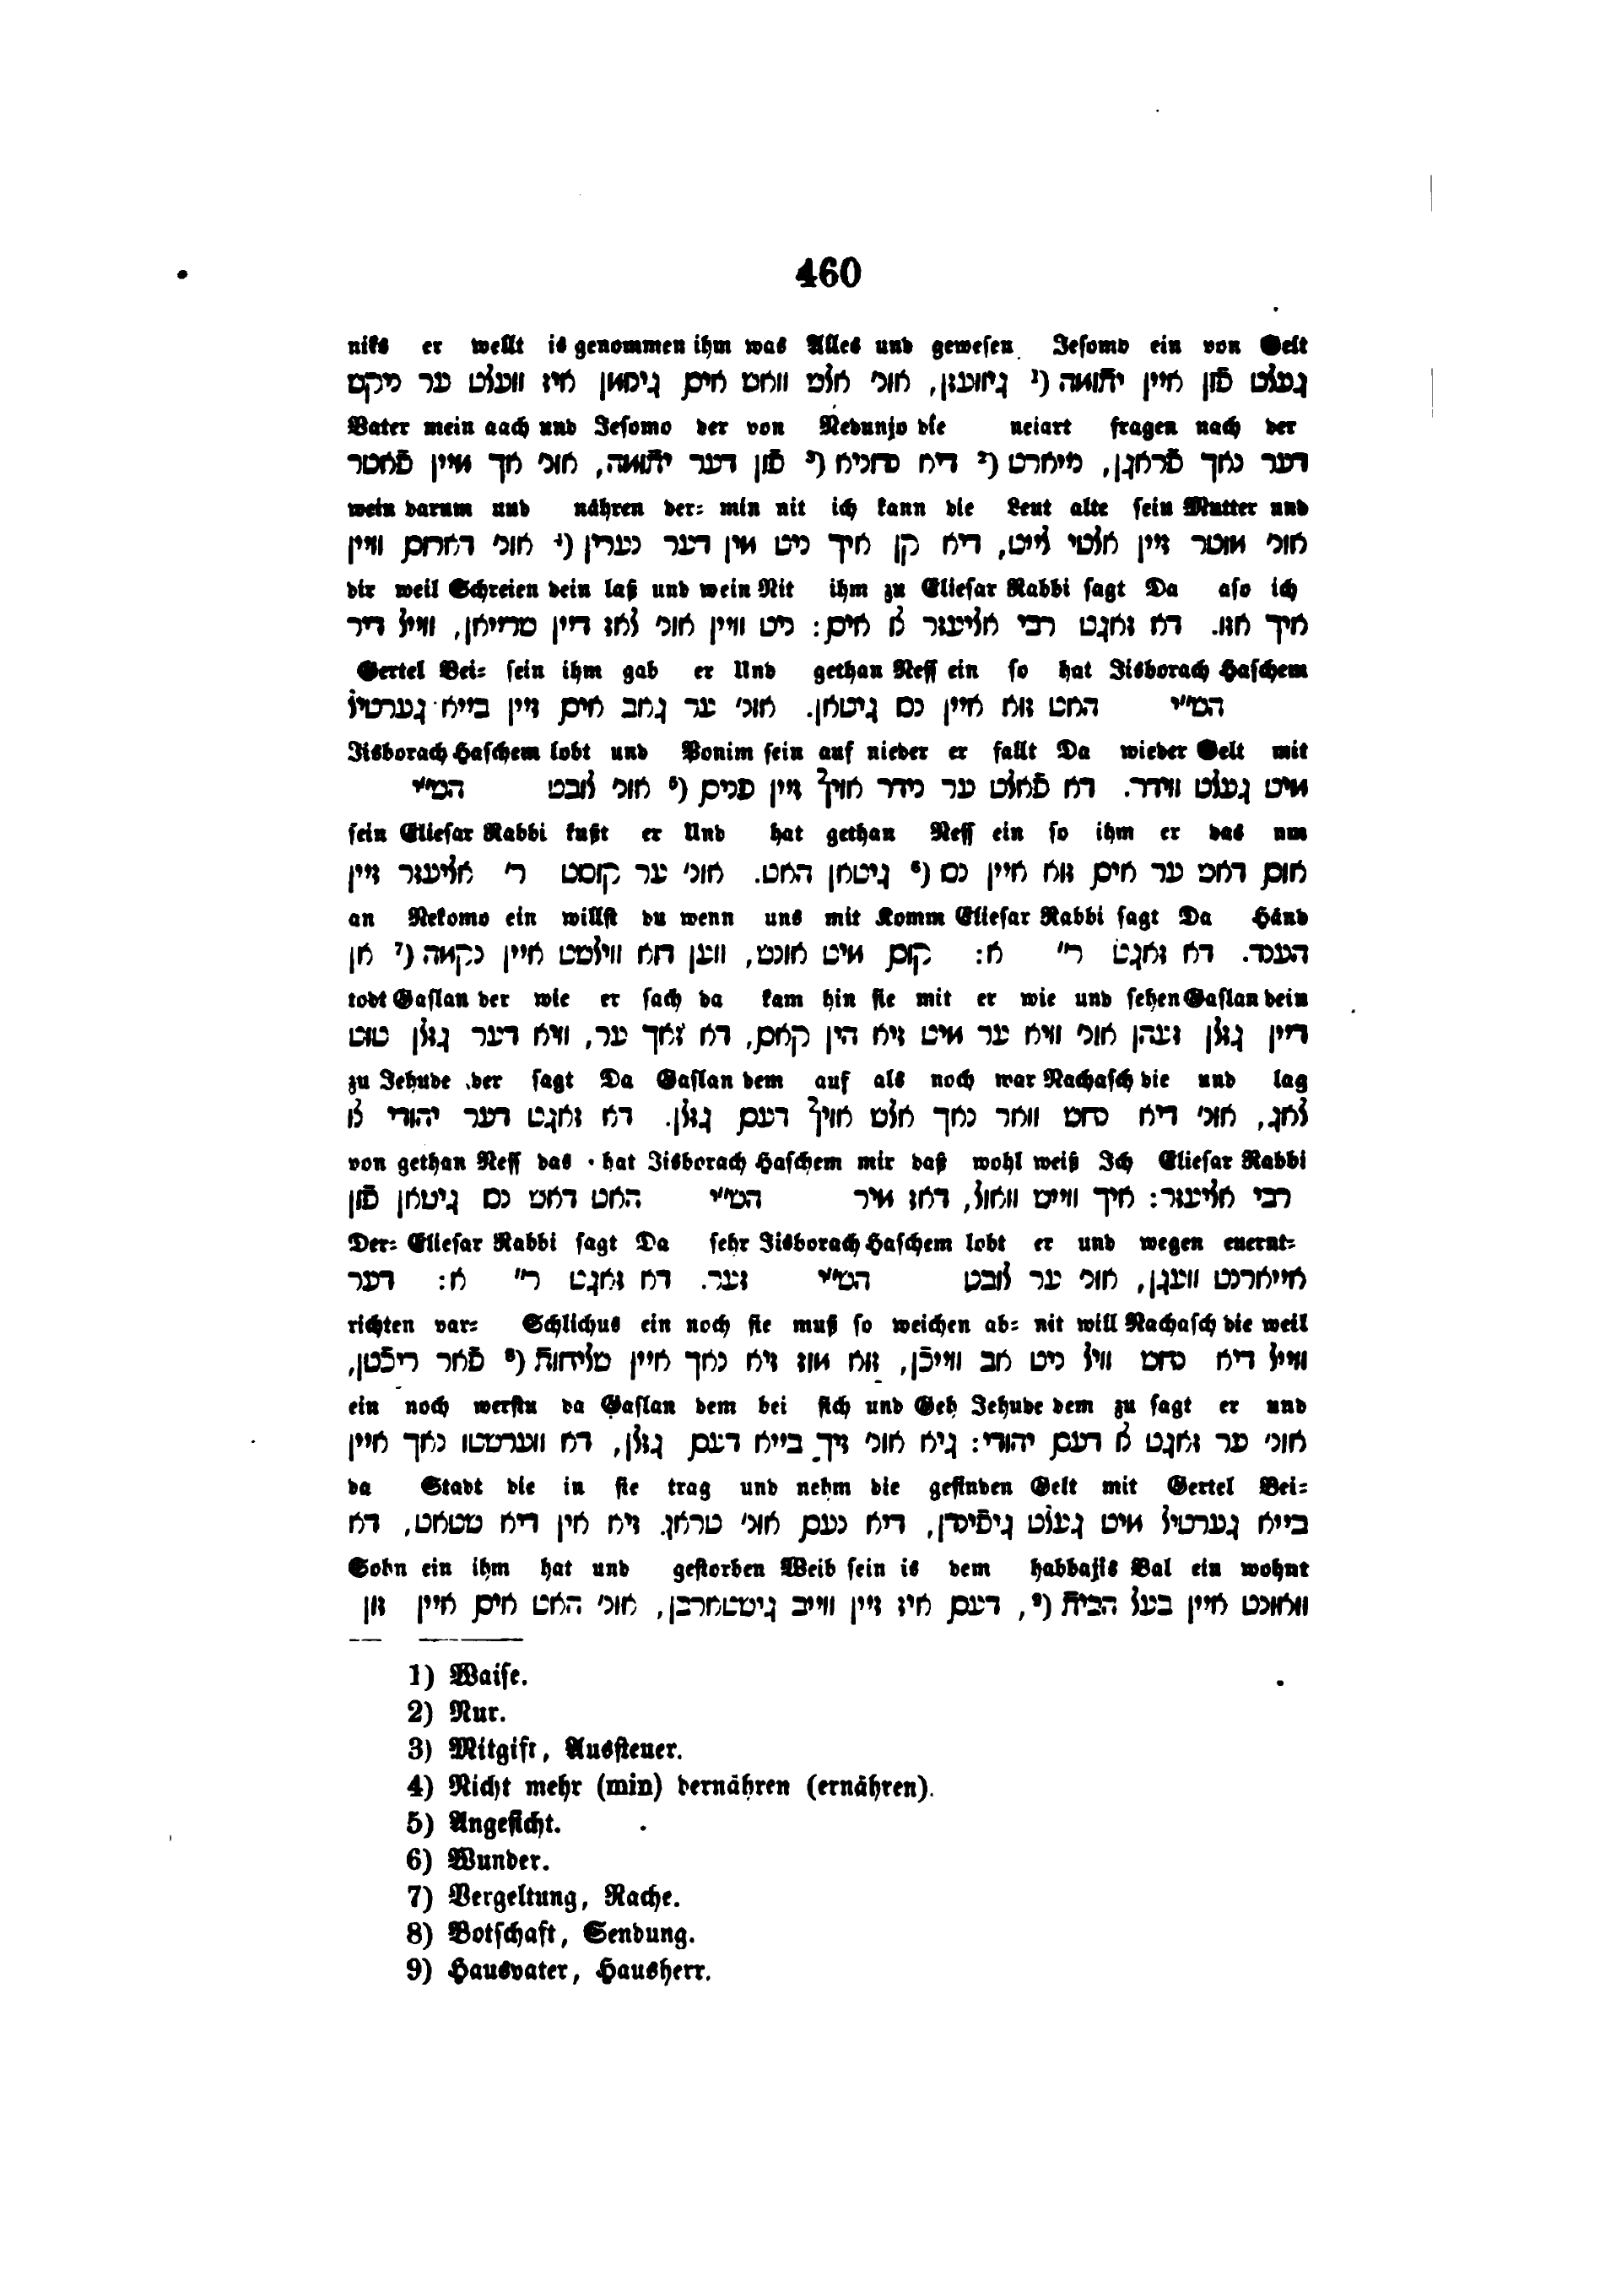 460
niks er wellt is genommen ihm was Alles und gewesen Jesomo ein von Gelt
געלט פֿון איין יתומה (¹ גיוועזן, אוני אלש וואש אים גינומן איז וועלט ער ניקש
Vater mein aach und Jesomo der von Nedunjo die neiart fragen nach der
דער נאך פֿראגן, נייארט (² דיא נדוניא (³ פֿון דער יתומה, אוני אך מיין פֿאטר
wein darum und nähren der= min nit ich kann die Leut alte sein Mutter und
אוני מוטר זיין אלטי לייט, דיא קן איך ניט מין דער נערין (⁴ אוני דארום וויין
dir weil Schreien dein laß und wein Nit ihm zu Eliesar Rabbi sagt Da aso ich
איך אזו. דא זאגט רבי אליעזר צו אים: ניט וויין אוני לאז דיין שרייאן, ווייל דיר
Gertel Bei= sein ihm gab er Und gethan Neff ein so hat Jisborach Haschem
הש״י האט זוא איין נס גיטאן. אוני ער גאב אים זיין בייא גערטיל
Jisborach Haschem lobt und Ponim sein auf nieder er fallt Da wieder Gelt mit
מיט געלט ווידר. דא פֿאלט ער נידר אויף זיין פנים (⁵ אוני לובט הש״י
sein Eliesar Rabbi kußt er Und hat gethan Neff ein so ihm er das um
אום דאש ער אים זוא איין נס (⁶ גיטאן האט. אוני ער קוסט ר׳ אליעזר זיין
an Nekomo ein willst du wenn uns mit Komm Eliesar Rabbi sagt Da Händ
הענד. דא זאגט ר״ א: קום מיט אונש, ווען דוא ווילשט איין נקמה (⁷ אן
todt Gaslan der wie er sach da kam hin sie mit er wie und sehen Gaslan dein
דיין גזלן זעהן אוני וויא ער מיט זיא הין קאם, דא זאך ער, וויא דער גזלן טוט
zu Jehude der sagt Da Gaslan dem auf als noch war Nachasch die und lag
לאג, אוני דיא נחש וואר נאך אלש אויף דעם גזלן. דא זאגט דער יהודי צו
von gethan Neff das hat Jisborach Haschem mir daß wohl weiß Ich Eliesar Rabbi
רבי אליעזר: איך ווייש וואול, דאז מיר הש״י האט דאש נס גיטאן פֿון
Der= Eliesar Rabbi sagt Da sehr Jisborach Haschem lobt er und wegen euernt=
אייארנט וועגן, אוני ער לובט הש״י זער. דא זאגט ר״ א: דער
richten var= Schlichus ein noch sie muß so weichen ab= nit will Nachasch die weil
ווייל דיא נחש וויל ניט אב ווייכֿן, זוא מוז זיא נאך איין שליחות (⁸ פֿאר ריכֿטן,
ein noch werstu da Gaslan dem bei sich und Geh Jehude dem zu sagt er und
אוני ער זאגט צו דעם יהודי: גיא אוני זיך בייא דעם גזלן, דא ווערשטו נאך איין
da Stadt die in sie trag und nehm die gefinden Gelt mit Gertel Bei=
בייא גערטיל מיט געלט גיפֿינדן, דיא נעם אוני טראג זיא אין דיא שטאט, דא
Sohn ein ihm hat und gestorben Weib sein is dem habbajis Bal ein wohnt
וואונט איין בעל הבית (⁹, דעם איז זיין ווייב גישטארבן, אוני האט אים איין זון
1) Waise.
2) Nur.
3) Mitgift, Aussteuer.
4) Nicht mehr (min) dernähren (ernähren).
5) Angesicht.
6) Wunder.
7) Vergeltung, Rache.
8) Botschaft, Sendung.
9) Hausvater, Hausherr.